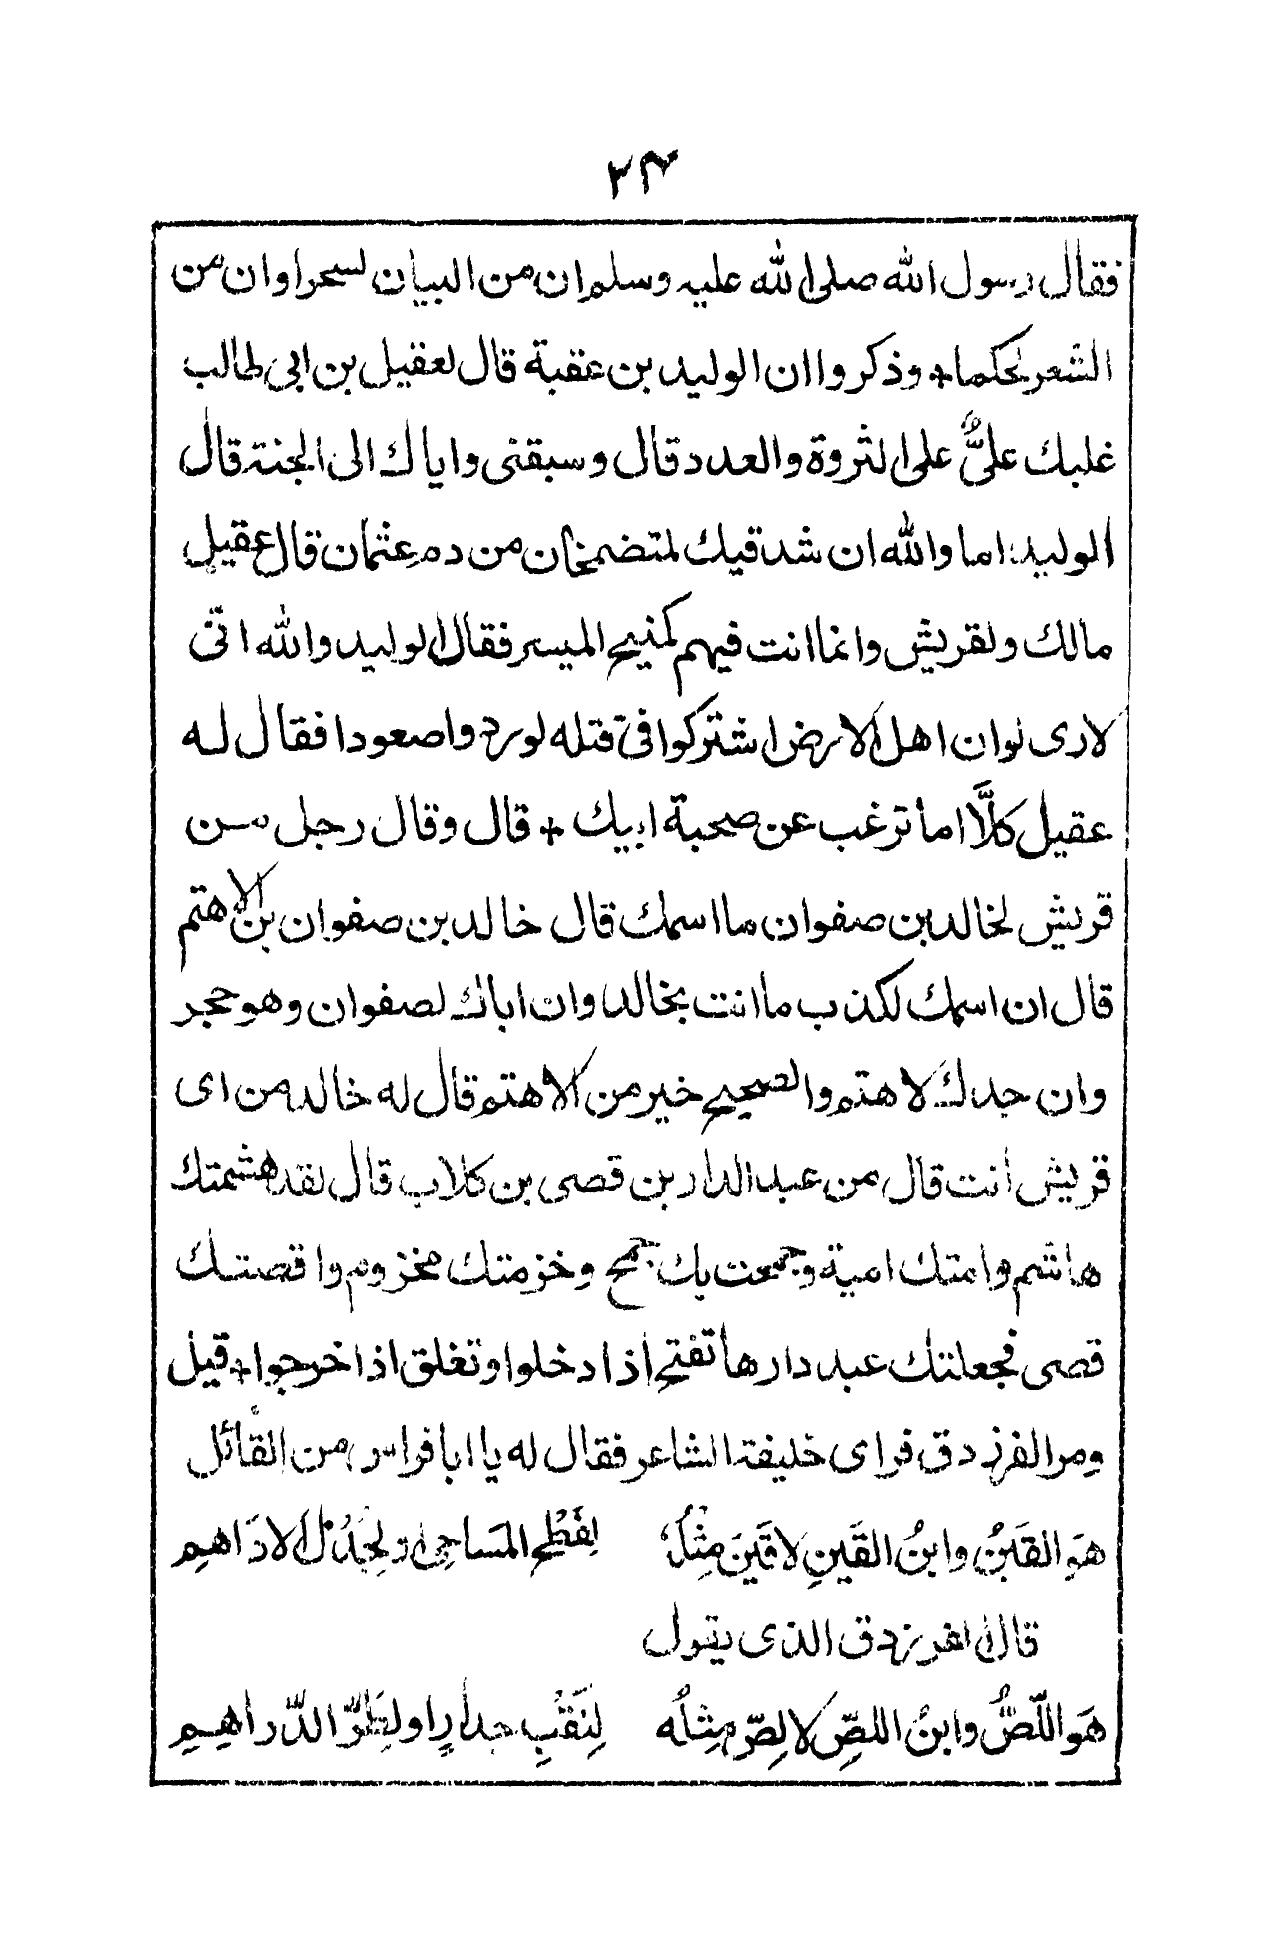 ٢٤
فقال رسول الله صلى الله عليه وسلم ان من البيان لسحرا وان من
الشعر لحكما + وذكروا ان الوليد بن عقبة قال لعقيل بن ابى طالب
غلبك علىٌّ على الثروة والعدد قال وسبقنى واياك الى الجنة قال
الوليد اما والله ان شدقيك لمتضمخان من دم عثمان قال عقيل
مالك ولقريش وانما انت فيهم كمنيح الميسر فقال الوليد والله انّى
لارى لو ان اهل الارض اشتركوا فى قتله لوردوا صعودا فقال له
عقيل كلَّا اما ترغب عن صحبة ابيك + قال وقال رجل من
قريش لخالد بن صفوان ما اسمك قال خالد بن صفوان بن الاهتم
قال ان اسمك لكذب ما انت بخالد وان اباك لصفوان وهو حجر
وان جدك لاهتم والصحيح خير من الاهتم قال له خالد من اى
قريش انت قال من عبد الدار بن قصى بن كلاب قال لقد هشمتك
هاشم وامتك امية وجمعت بك جمح وخزمتك مخزوم واقصتك
قصى فجعلتك عبد دارها تفتح اذا دخلوا وتغلق اذا خرجوا + قيل
ومر الفرزدق فراى خليفة الشاعر فقال له يا ابا فراس من القائل
هوَ القَينُ وابنُ القَينِ لا قَينَ مِثْلُهُ لِفَطْحِ المَسَاحِى او لِجَدْلِ الاَدَاهِمِ
قال الفرزدق الذى يقول
هوَ اللّصُّ وابنُ اللصِّ لا لِصّ مِثلُه لِنَقْبِ جدارٍ او لِطَرِّ الدّراهِمِ